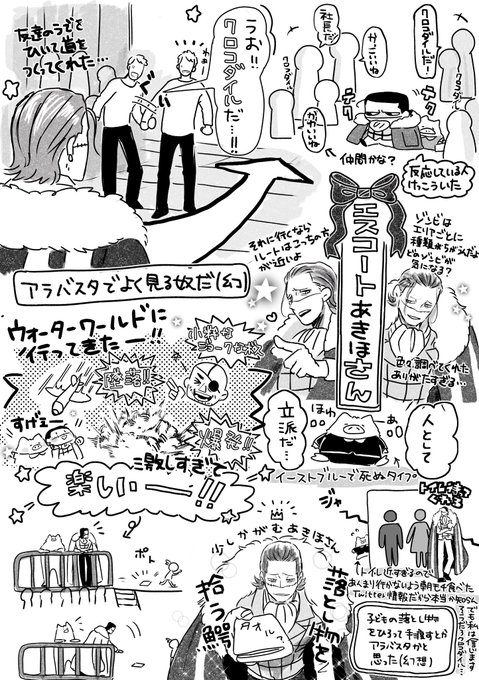 クロコダイルだ…
クロコダイル
かっこいいね
社長だ!
かわいいね
テク
テク
仲間かな?
反応している人
けっこういた
うお!!
クロコダイルだ…!!
ぐい
友達のうでを
ひいて道を
つくってくれた…
アラバスタでよく見る奴だ(幻)
エスコートあきほさん
ゾンビは
エリアごとに
気になる?
それに行くなら
ルートはこっちの方
が近いよ
色々調べてくれた
ありがたすぎる…
人として
立派だ…
ほわ
あぁ
イーストブルーで死ぬタイプ
ウォーターワールドに
行ってきたー!!
小粋な
ジョークな奴
墜落!!
爆発!!
すげぇー
激しすぎて
楽しいー!!
ジャー
トイレ近すぎるので
あんまり行かないよう朝モチ食べた
Twitter情報だから本当か知らん
ポト
少しかがむあきほさん
落とし物を
拾う鰐
タオル
子どもの落とし物
をひろって手渡すとか
アラバスタかと
思った(幻想)